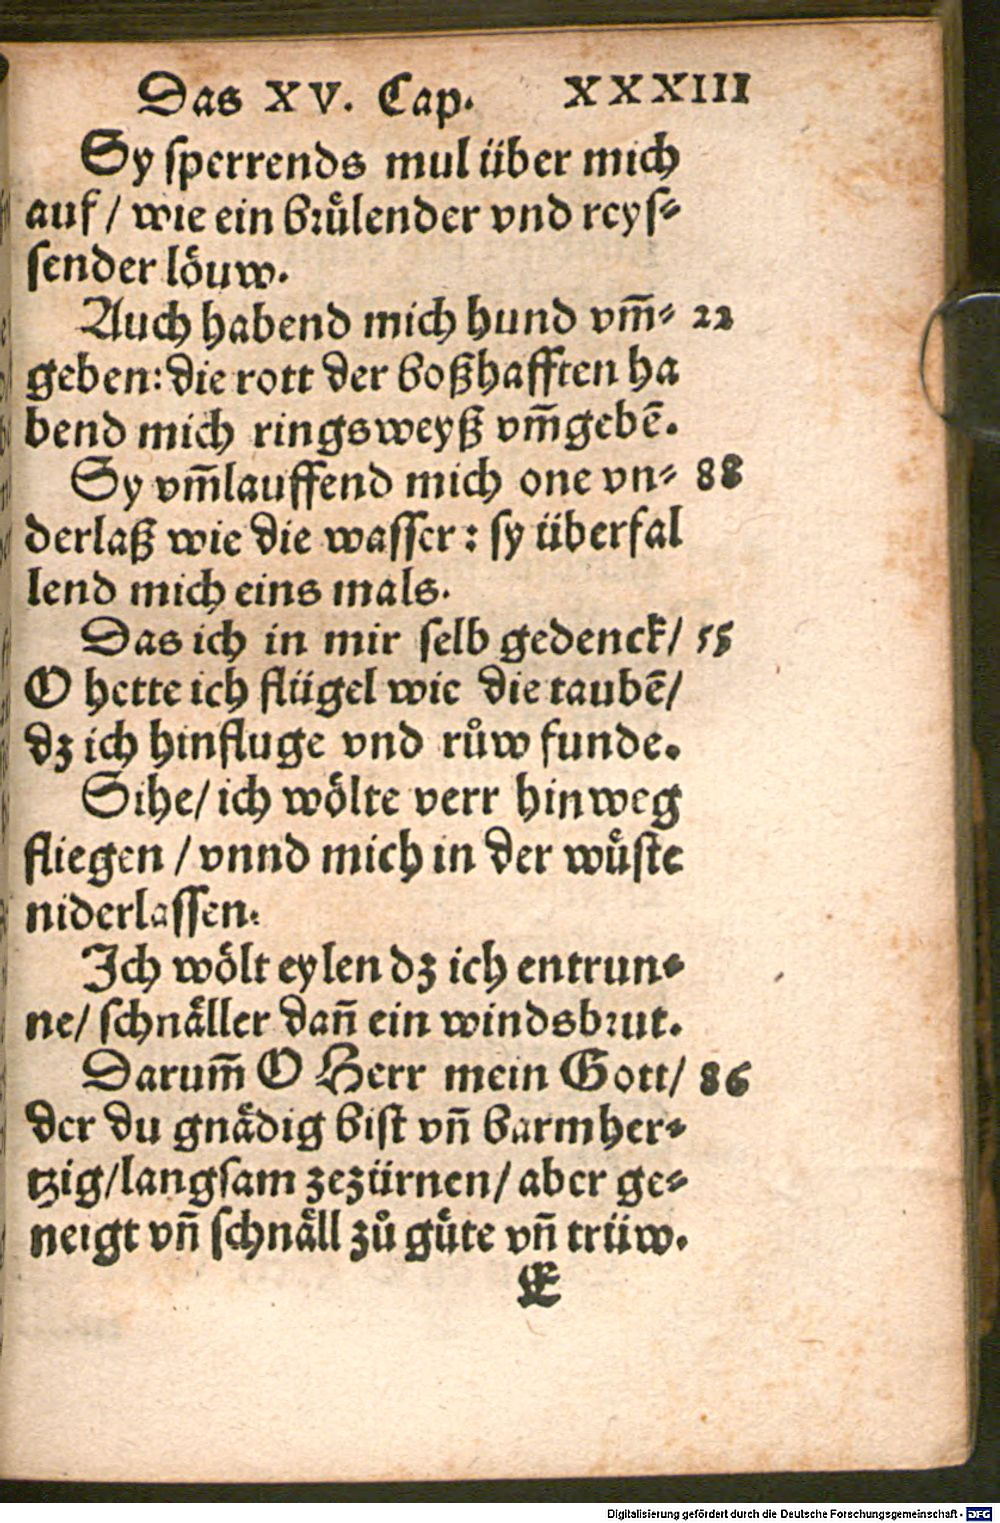 Das XV. Cap. XXXIII
Sy sperrends mul über mich
auf / wie ein bruͤlender vnd reys⸗
sender loͤuw.
Auch habend mich hund vm̃⸗ 22
geben: die rott der boßhafften ha
bend mich ringsweyß vm̃gebẽ.
Sy vm̃lauffend mich one vn⸗ 88
derlaß wie die wasser: sy überfal
lend mich eins mals.
Das ich in mir selb gedenck/ 55
O hette ich flügel wie die taubẽ/
dz ich hinfluge vnd ruͦw funde.
Sihe/ ich woͤlte verr hinweg
fliegen / vnnd mich in der wuͤste
niderlassen.
Ich woͤlt eylen dz ich entrun⸗
ne/ schnaͤller dañ ein windsbrut.
Darum̃ O Herr mein Gott/ 86
der du gnaͤdig bist vñ barmher⸗
tzig/langsam zezürnen/ aber ge⸗
neigt vñ schnaͤll zuͦ guͤte vñ trüw.
E
Digitalisierung gefördert durch die Deutsche Forschungsgemeinschaft - DFG